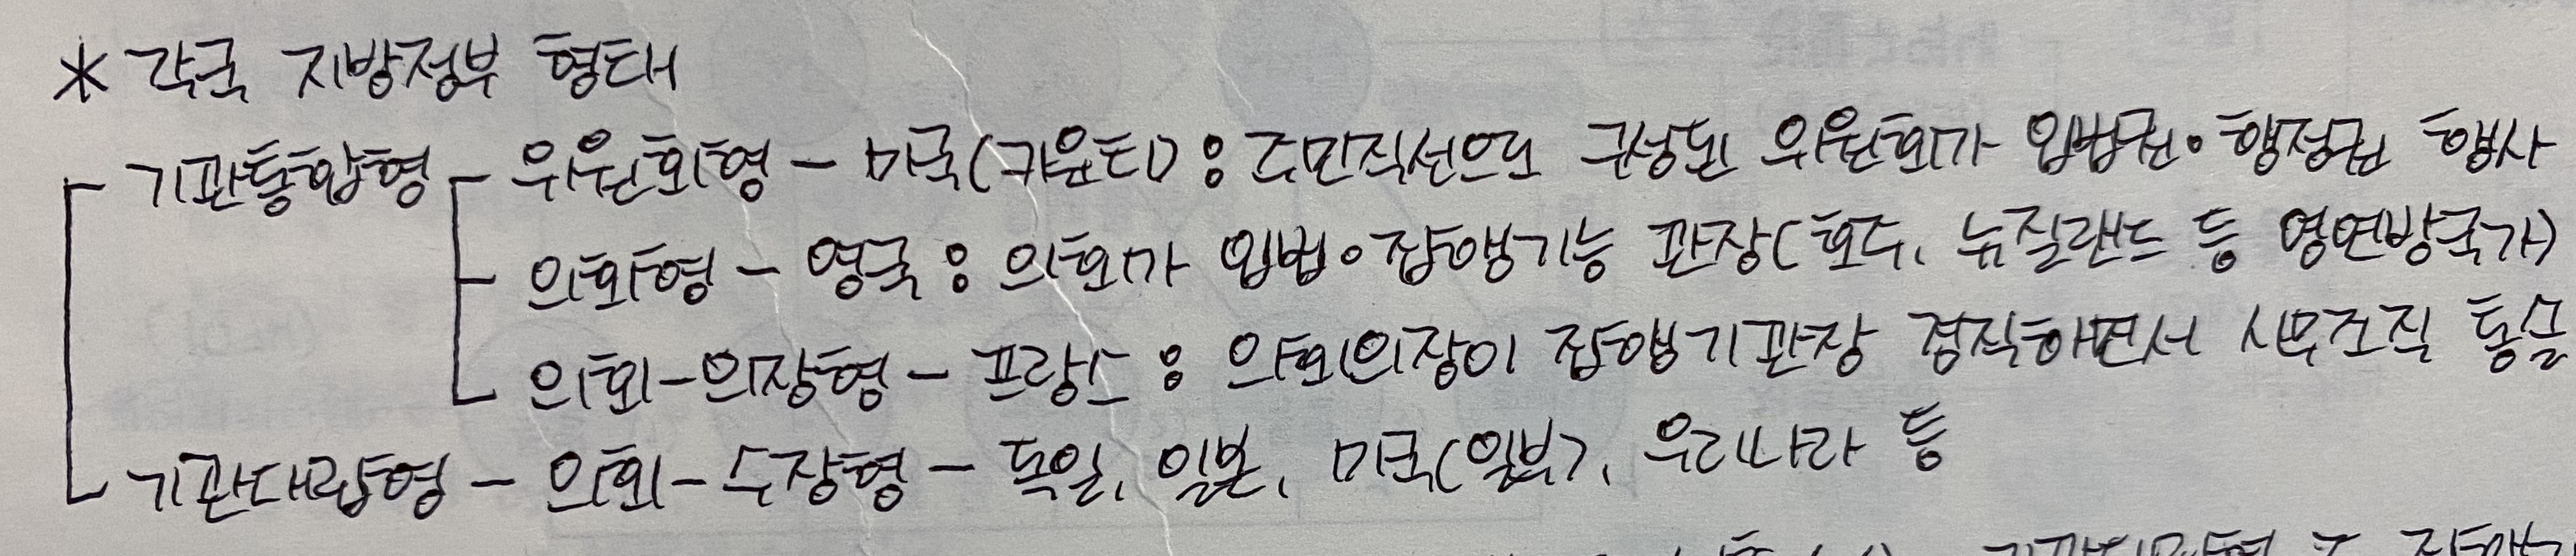 * 각국 지방정부 형태
기관통합형 - 위원회형 - 미국(카운티) : 주민직선으로 구성된 위원회가 입법권·행정권 행사
의회형 - 영국 : 의회가 입법·집행기능 관장(호주, 뉴질랜드 등 영연방국가)
의회-의장형 - 프랑스 : 의회의장이 집행기관장 겸직하면서 사무조직 통솔
기관대립형 - 의회-수장형 - 독일, 일본, 미국(일부), 우리나라 등